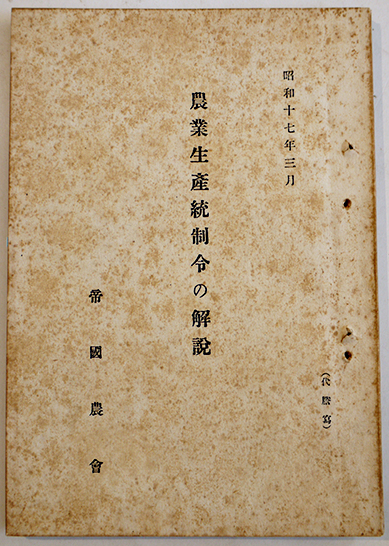 昭和十七年三月
農業生產統制令の解說
帝國農會
(代謄寫)